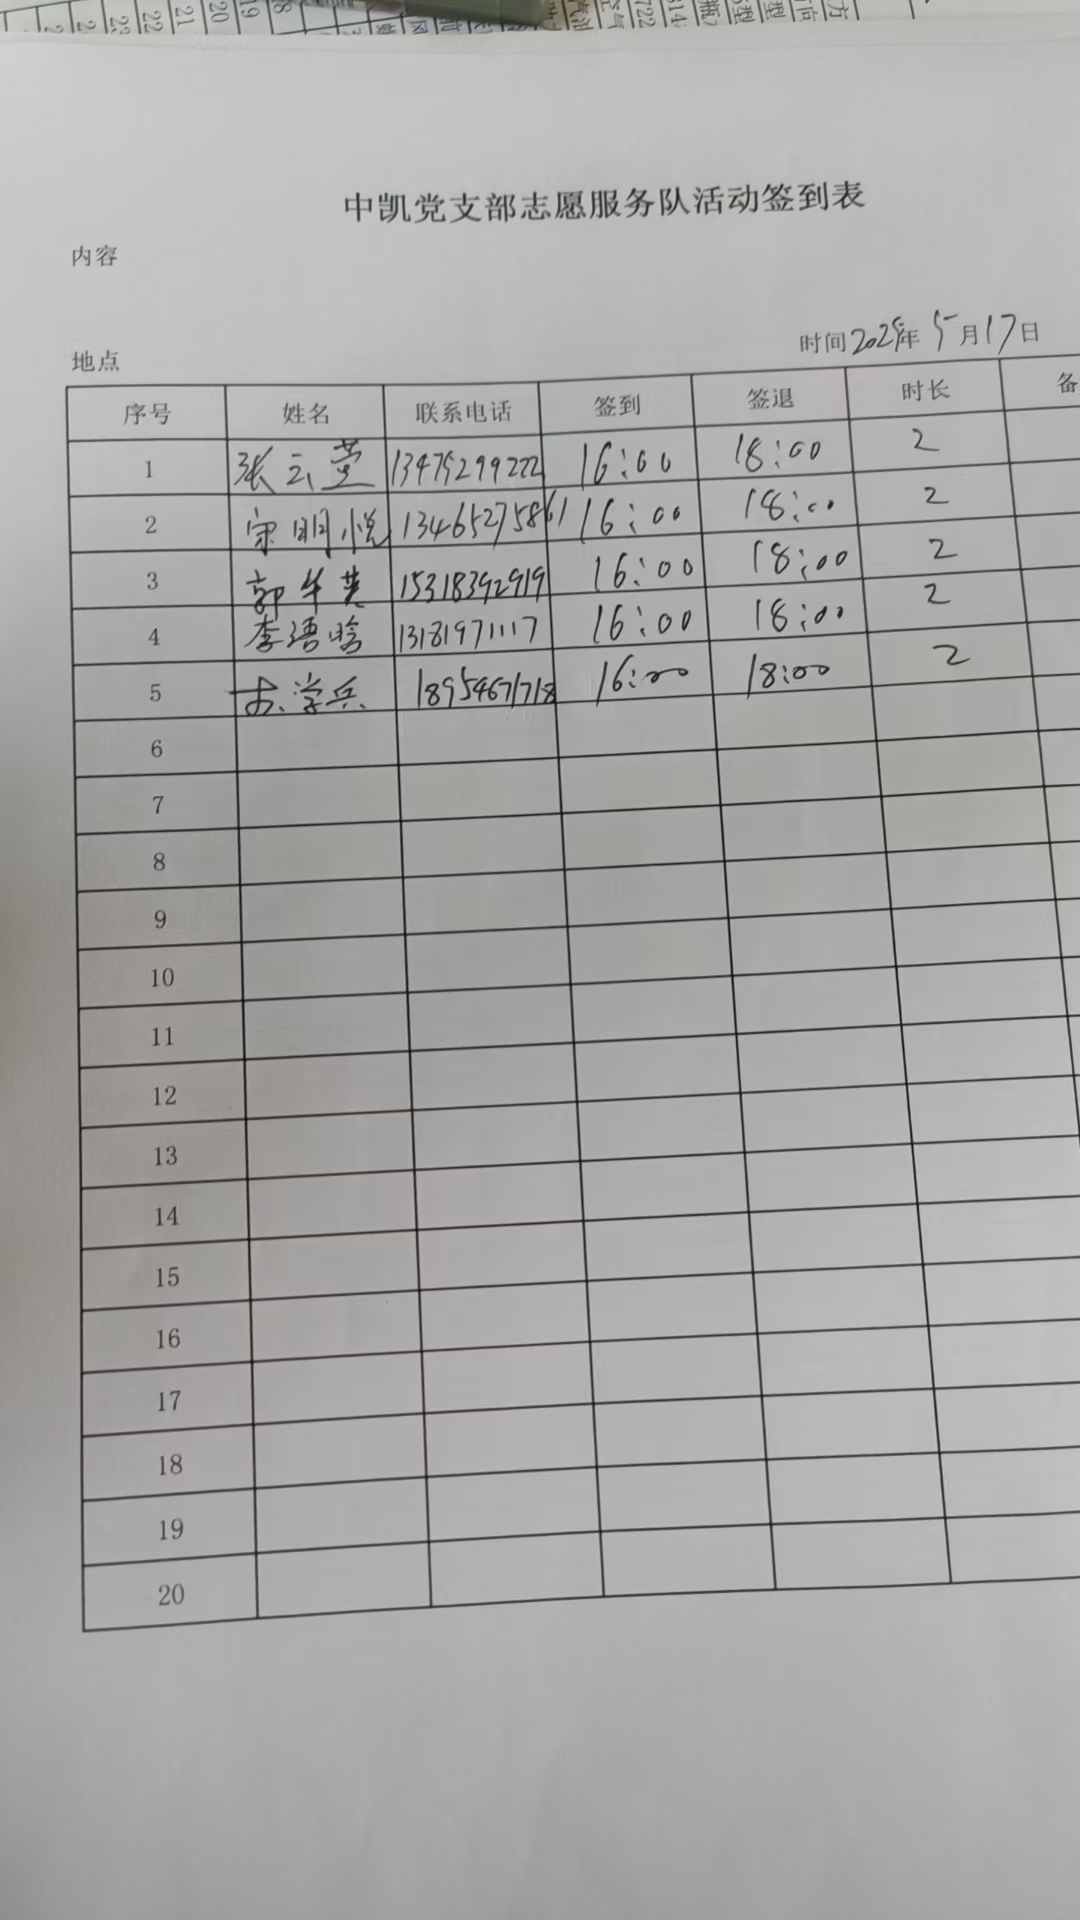 中凯党支部志愿服务队活动签到表
内容
地点
时间2025年5月17日
序号 姓名 联系电话 签到 签退 时长 备
1 张云萱 13475299222 16:00 18:00 2
2 宋明悦 13465275861 16:00 18:00 2
3 郭华英 15318392919 16:00 18:00 2
4 李语晗 13181971117 16:00 18:00 2
5 学兵 18954671718 16:00 18:00 2
6
7
8
9
10
11
12
13
14
15
16
17
18
19
20